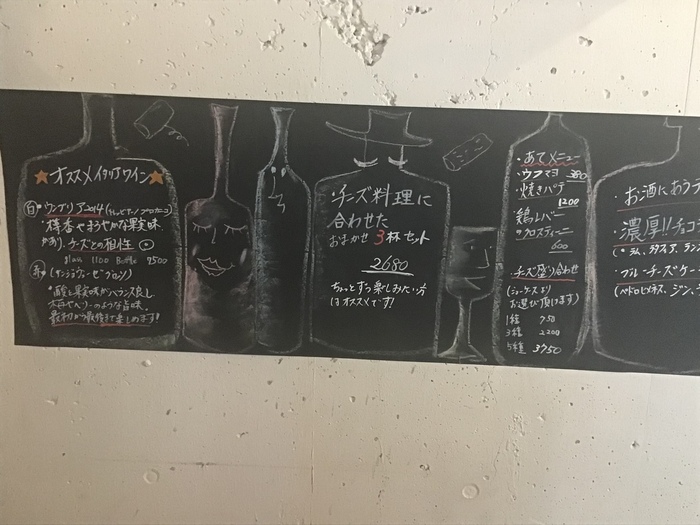 ★オススメイタリアワイン★
白 ・ウンブリア2014(トレッビアーノ
樽香やまろやかな果実味
があり、チーズとの相性◎
glass 1100 Bottle 7500
赤 (サンジョヴェーゼ
・酸と果実味がバランス良し
のような旨味。
最初から最後まで楽しめます!
・チーズ料理に
合わせた
おまかせ 3杯セット
2680
ちょっとずつ楽しみたい方
はオススメです!
・あてメニュー
・ウフマヨ 380
・焼きパテ
1200
・鶏レバー
のクロスティーニ
600
チーズ盛り合わせ
(ショーケースより
お選び頂けます)
1種 750
3種 2200
5種 3750
・お酒におう
・濃厚!!チョコ
(・ラム、
・ブルーチーズケー
(ペドロヒメネス、ジン、